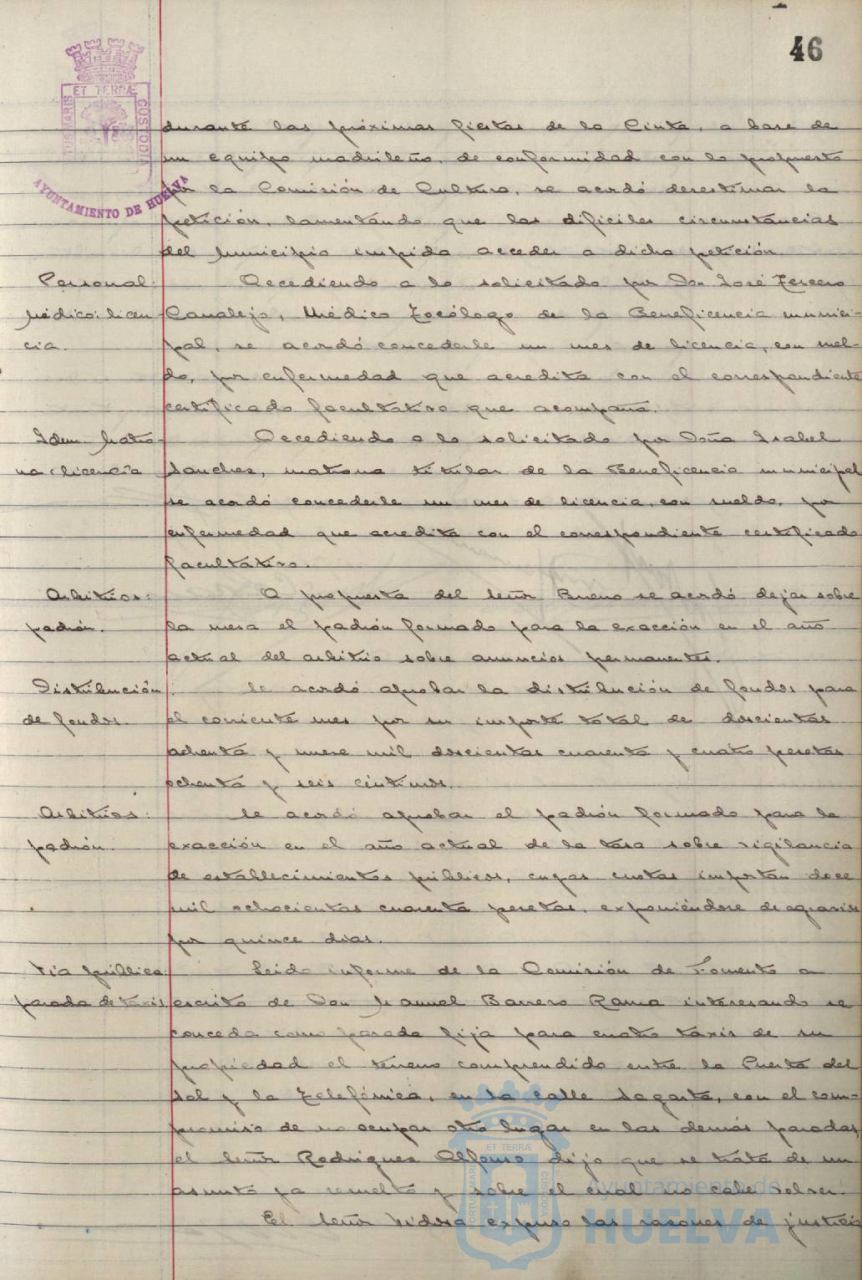 46
ET TERRÆ
CUSTODIA
AYUNTAMIENTO DE HUELVA
durante las próximas fiestas de la Cinta, a base de
un equipo madrileño, de conformidad con lo propuesto
por la Comisión de Cultura, se acordó desestimar la
petición, lamentando que las difíciles circunstancias
del Municipio impida acceder a dicha petición.
Personal
Médico: licen-
cia.
Accediendo a lo solicitado por Don José Tercero
Canalejo, Médico Tocólogo de la Beneficencia munici-
pal, se acordó concederle un mes de licencia, con suel-
do, por enfermedad que acredita con el correspondiente
certificado facultativo que acompaña.
Idem Matro-
na: licencia
Accediendo a lo solicitado por Doña Isabel
Sanchez, matrona titular de la Beneficencia municipal
se acordó concederle un mes de licencia, con sueldo, por
enfermedad que acredita con el correspondiente certificado
facultativo.
Arbitrios:
padrón.
A propuesta del Señor Bueno se acordó dejar sobre
la mesa el padrón formado para la exacción en el año
actual del arbitrio sobre anuncios permanentes.
Distribución
de fondos.
Se acordó aprobar la distribución de fondos para
el corriente mes por su importe total de doscientas
ochenta y nueve mil doscientas cuarenta y cuatro pesetas
ochenta y seis céntimos.
Arbitrios:
padrón.
Se acordó aprobar el padrón formado para la
exacción en el año actual de la tasa sobre vigilancia
de establecimientos públicos, cuyas cuotas importan doce
mil ochocientas cuarenta pesetas, exponiéndose de agravios
por quince dias.
Via pública
parada de taxis.
Leido informe de la Comisión de Fomento a
escrito de Don Manuel Barrero Rama interesando se
conceda como parada fija para cuatro taxis de su
propiedad el terreno comprendido entre la Puerta del
Sol y la Telefónica, en la calle Sagasta, con el com-
promiso de no ocupar otro lugar en las demás paradas,
el Señor Rodriguez Alfonso dijo que se trata de un
asunto ya resuelto y sobre el cual no cabe volver.
El Señor Vidosa expuso las razones de justicia
Ayuntamiento de
HUELVA